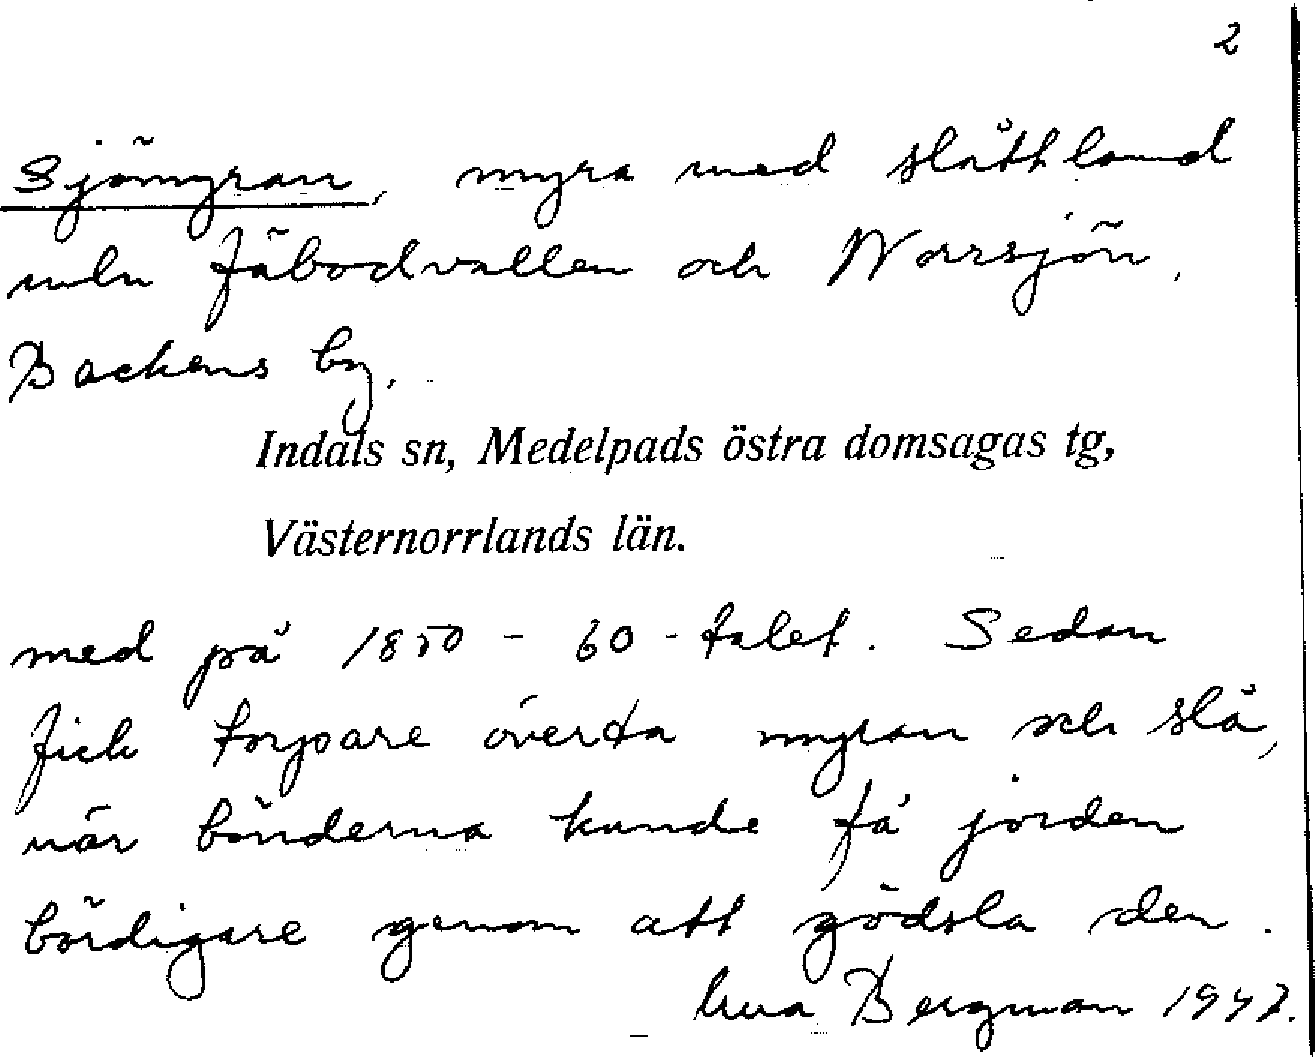 2
Sjömyran, myra med slåttland
mln fäbodvallen och Norrsjön,
Backens by.
Indals sn, Medelpads östra domsagas tg,
Västernorrlands län.
med på 1850-60-talet. Sedan
fick torpare överta myran och slå,
när bönderna kunde få jorden
bördigare genom att gödsla den.
Bergman 1947.